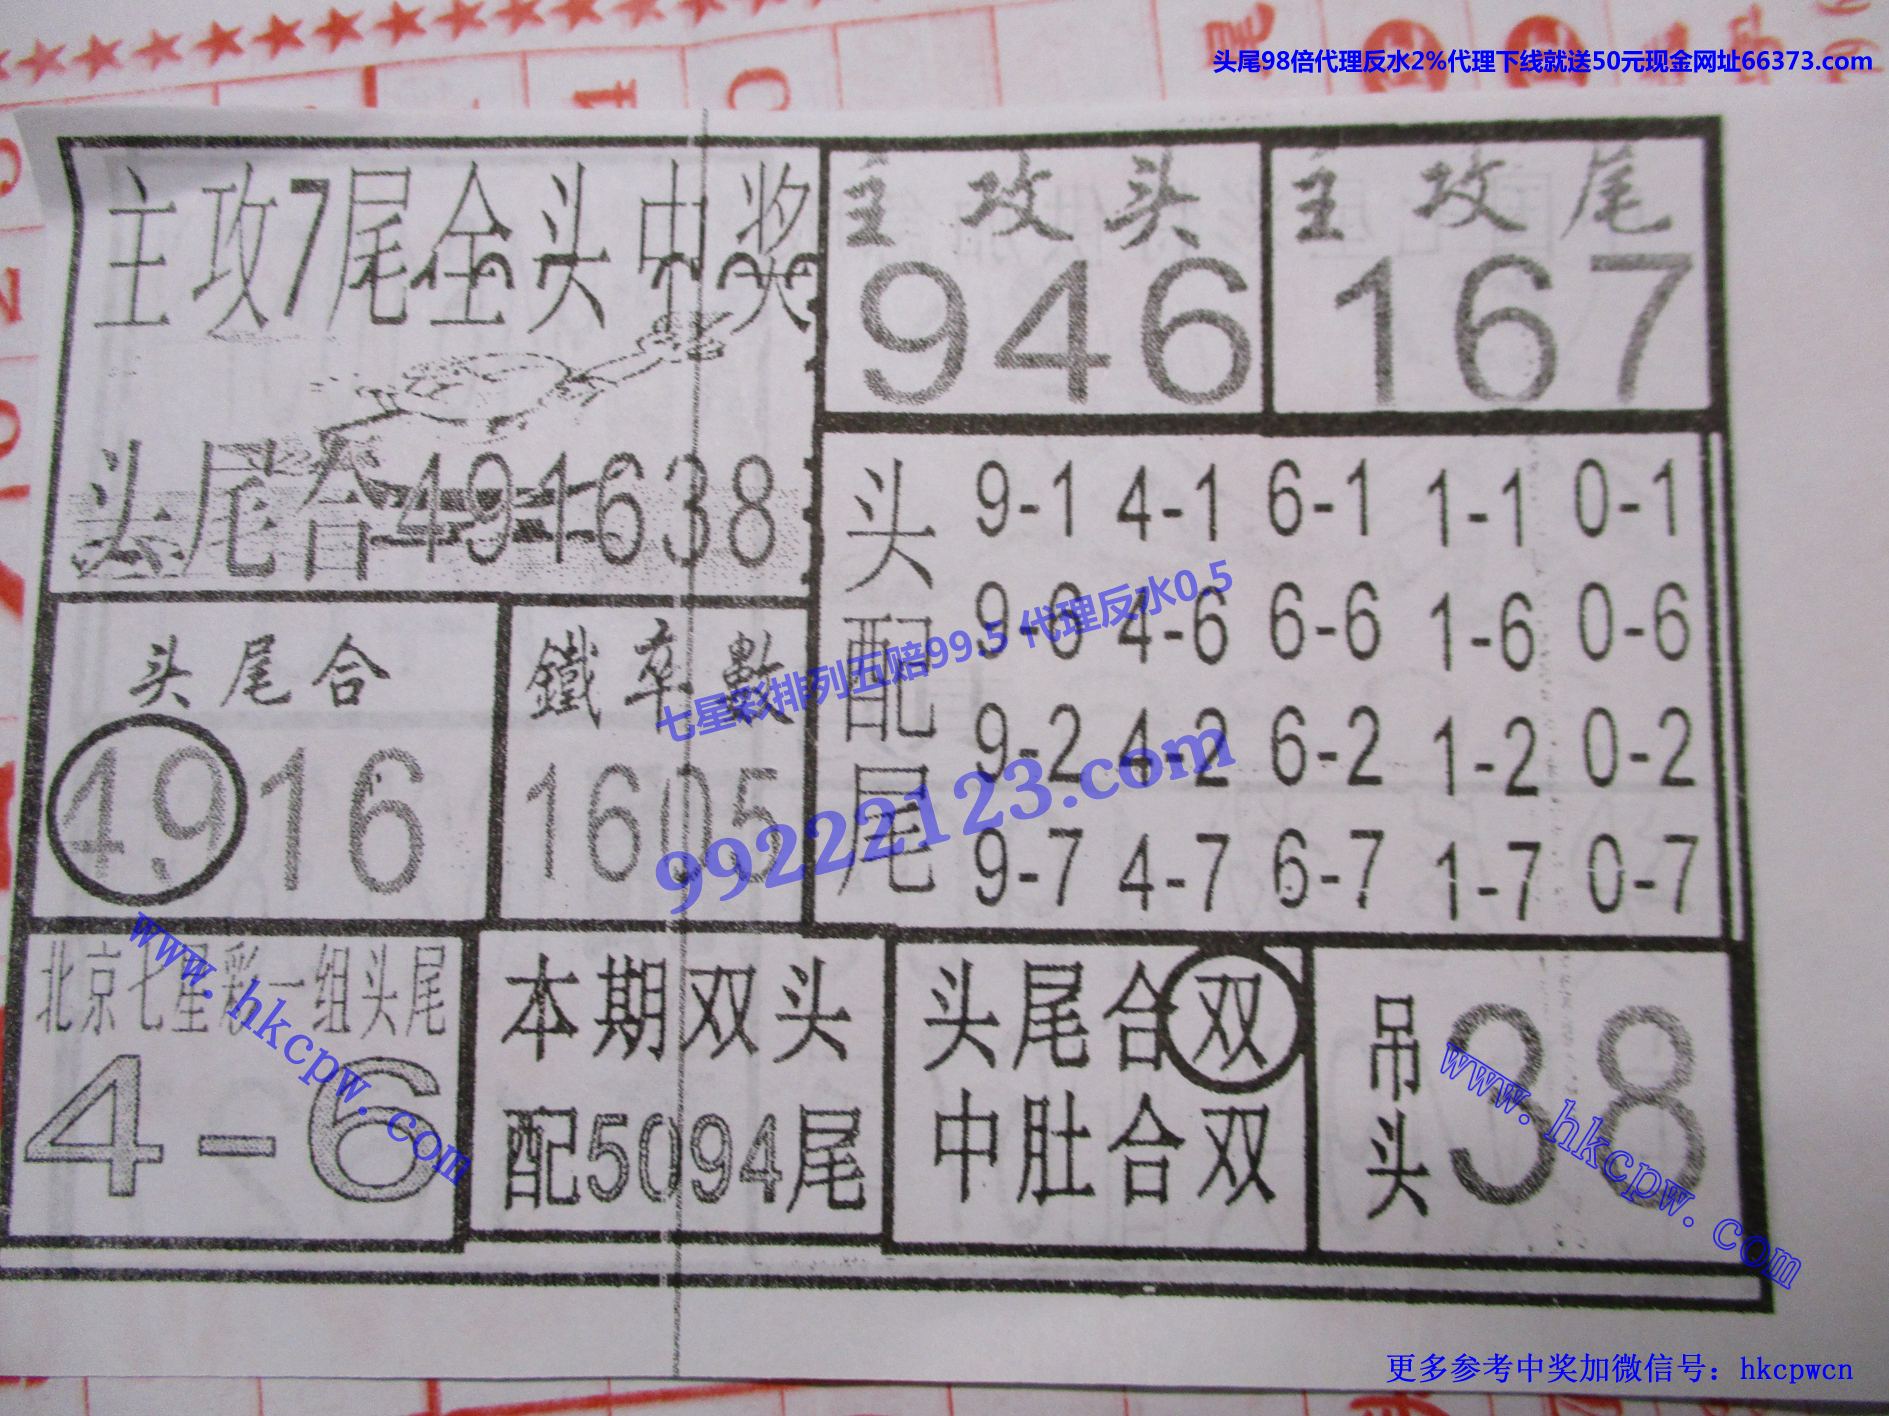 头尾98倍代理反水2%代理下线就送50元现金网址66373.com
主攻7尾全头中奖
头尾合491638
主攻头
946
主攻尾
167
头配尾
9-1 4-1 6-1 1-1 0-1
9-6 4-6 6-6 1-6 0-6
9-2 4-2 6-2 1-2 0-2
9-7 4-7 6-7 1-7 0-7
头尾合
4916
鐵率數
1605
七星彩排列五赔99.5 代理反水0.5
99222123.com
北京七星彩一组头尾
4-6
www.hkcpw.com
本期双头
配5094尾
头尾合双
中肚合双
吊头
38
www.hkcpw.com
更多参考中奖加微信号：hkcpwcn